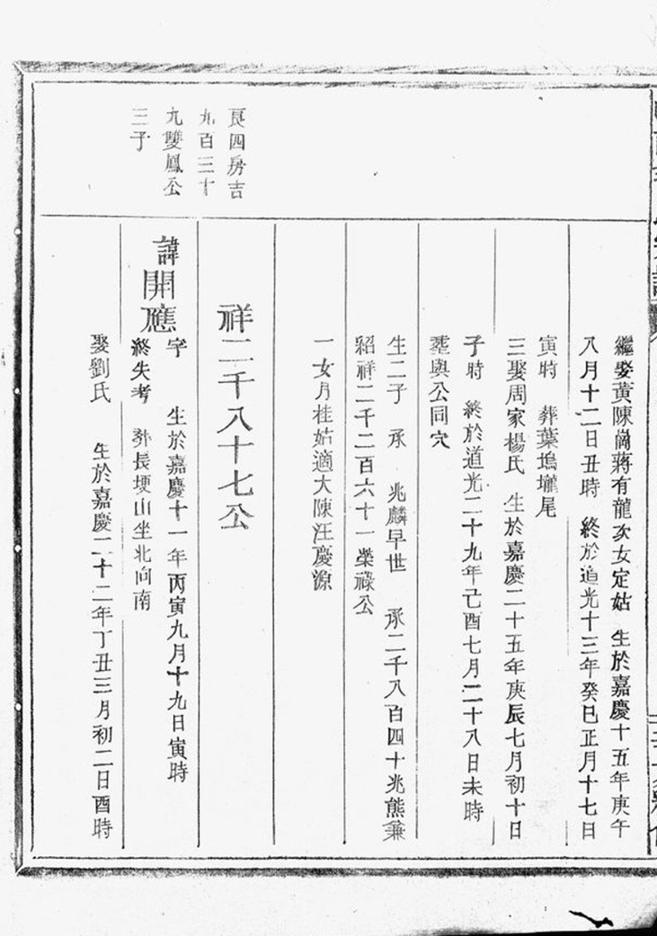 繼娶黃陳崗蔣有龍次女定姑 生於嘉慶十五年庚午
八月十二日丑時 終於道光十三年癸巳正月十七日
寅時 葬葉塢壠尾
三娶周家楊氏 生於嘉慶二十五年庚辰七月初十日
子時 終於道光二十九年己酉七月二十八日未時
塟與公同穴
生二子 承 兆麟早世 承二千八百四十兆熊兼
紹祥二千二百六十一榮祿公
一女月桂姑適大陳汪慶源
祥二千八十七公
長四房吉
九百三十
九雙鳳公
三子
諱開應
字 生於嘉慶十一年丙寅九月十九日寅時
終失考 葬長埂山坐北向南
娶劉氏 生於嘉慶二十二年丁丑三月初二日酉時